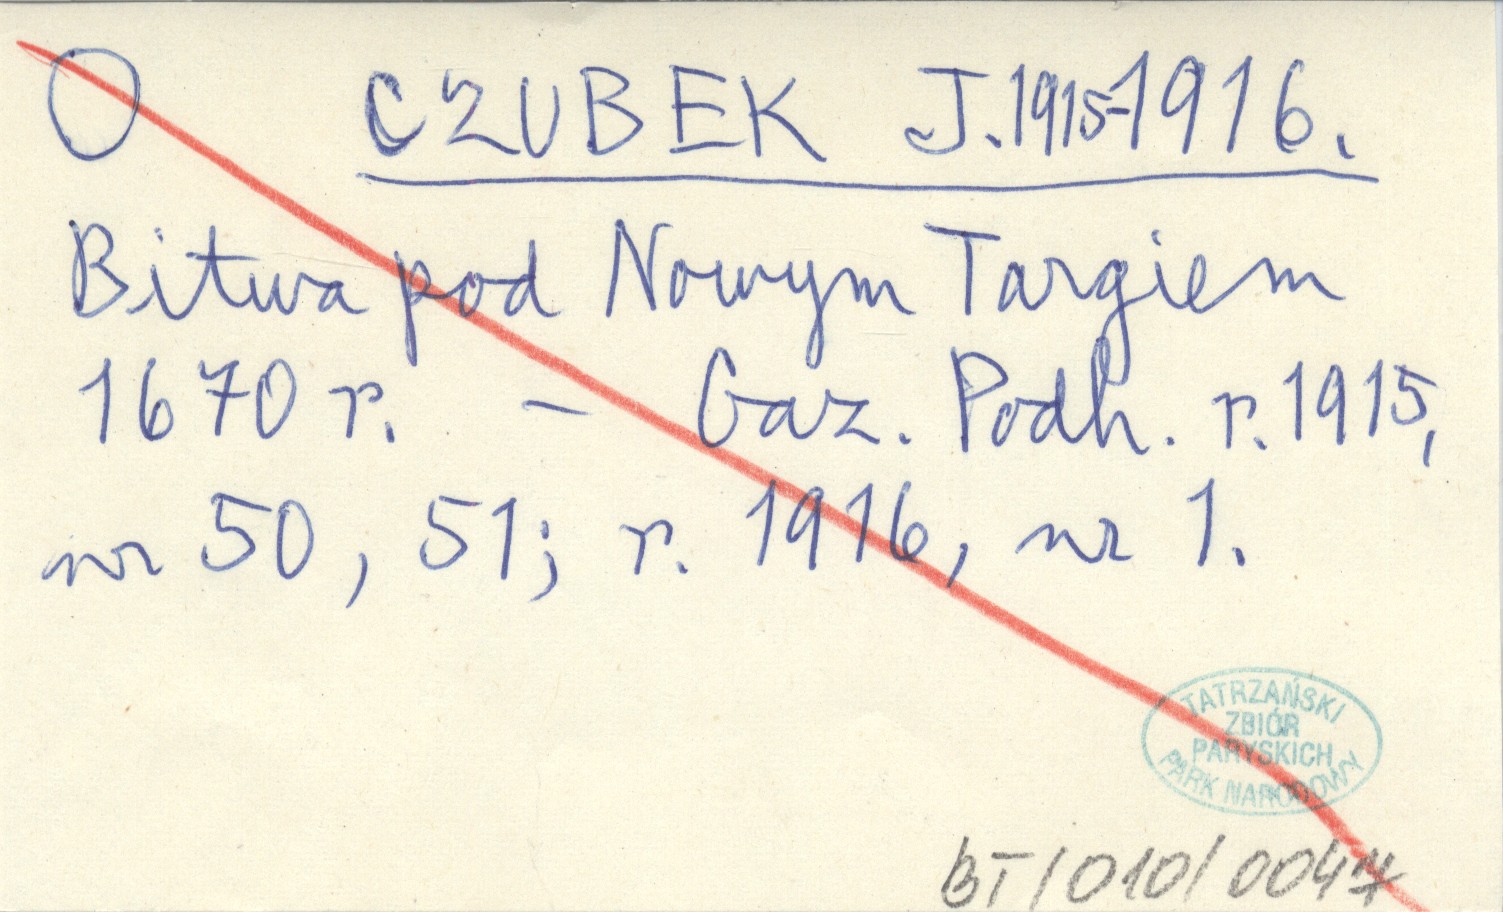 O CZUBEK J. 1915-1916.
Bitwa pod Nowym Targiem
1670 r. - Gaz. Podh. r. 1915,
nr 50, 51; r. 1916, nr 1.
TATRZAŃSKI
ZBIÓR
PARYSKICH
PARK NARODOWY
BT/010/0047